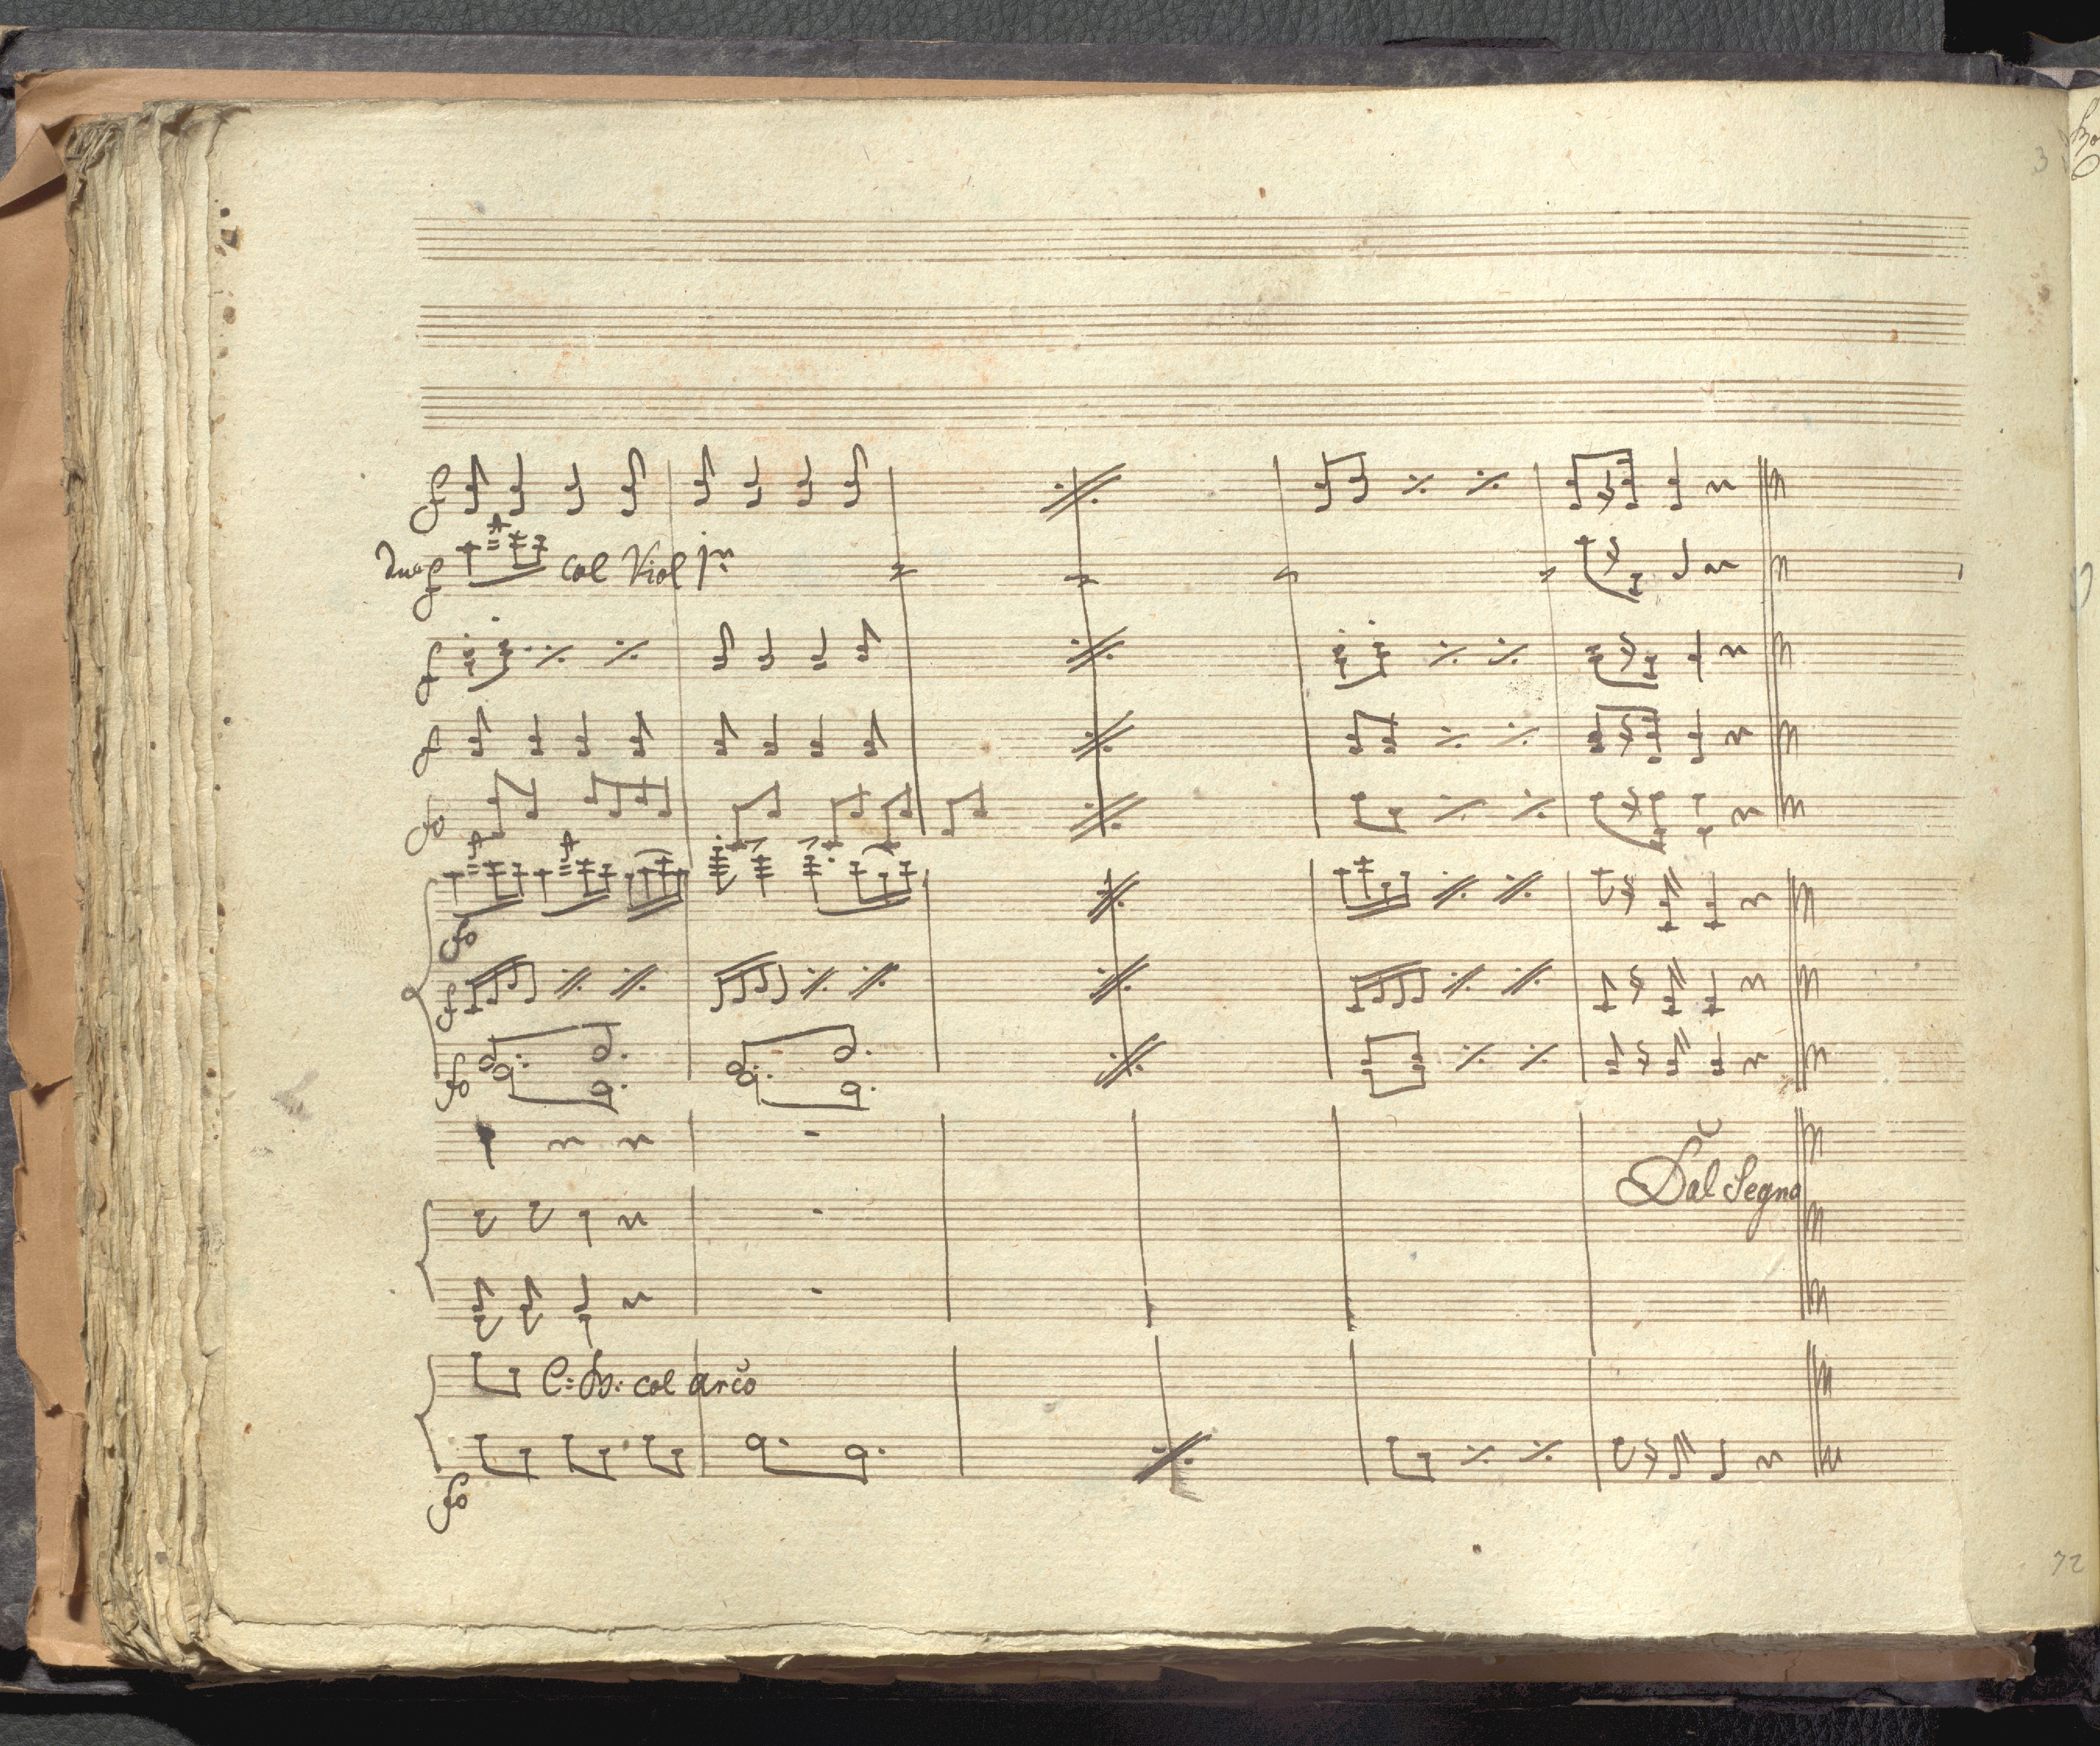 3
f
due f col Viol 1mo
f
f
fo
fo
f
fo
Dal Segno
C: B: col arco
fo
72